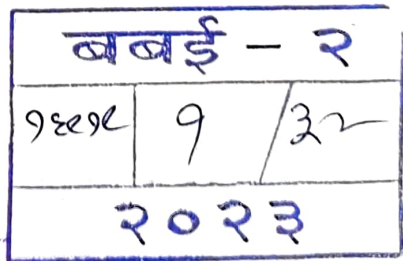 बबई - २
१६९१९ १ /३२
२०२३